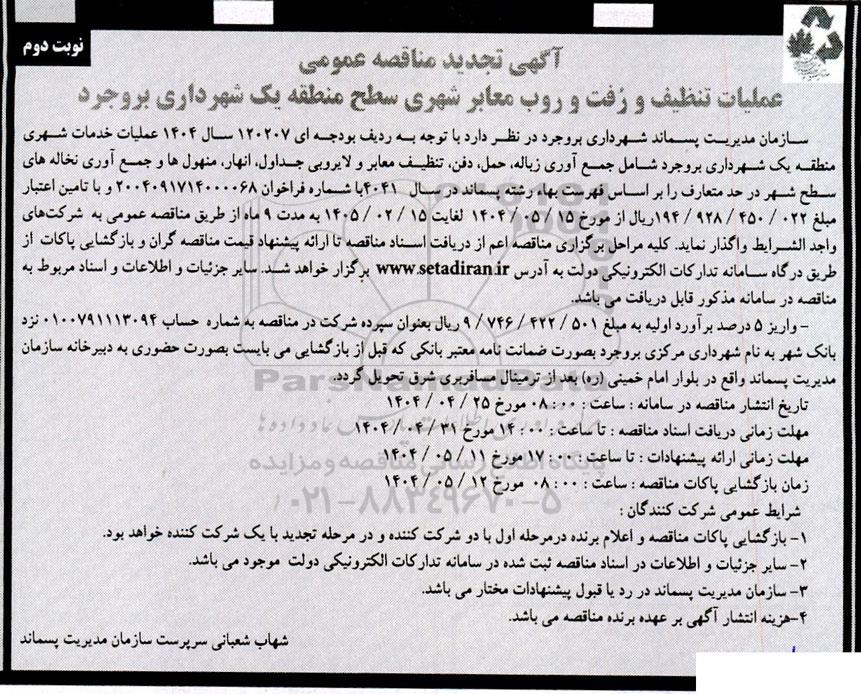 نوبت دوم
آگهی تجدید مناقصه عمومی
عملیات تنظیف و رُفت و روب معابر شهری سطح منطقه یک شهرداری بروجرد
سازمان مدیریت پسماند شهرداری بروجرد در نظر دارد با توجه به ردیف بودجه ای ۱۲۰۲۰۷ سال ۱۴۰۴ عملیات خدمات شهری
منطقه یک شهرداری بروجرد شامل جمع آوری زباله، حمل، دفن، تنظیف معابر و لایروبی جداول، انهار، منهول ها و جمع آوری نخاله های
سطح شهر در حد متعارف را بر اساس فهرست بهاء رشته پسماند در سال ۴۰۴۱با شماره فراخوان ۲۰۰۴۰۹۱۷۱۴۰۰۰۰۶۸ و با تامین اعتبار
مبلغ ۰۲۲ / ۴۵۰ / ۹۲۸ / ۱۹۴ریال از مورخ ۱۵ / ۰۵ / ۱۴۰۴ لغایت ۱۵ / ۰۲ / ۱۴۰۵ به مدت ۹ ماه از طریق مناقصه عمومی به شرکت‌های
واجد الشرایط واگذار نماید. کلیه مراحل برگزاری مناقصه اعم از دریافت اسناد مناقصه تا ارائه پیشنهاد قیمت مناقصه گران و بازگشایی پاکات از
طریق درگاه سامانه تدارکات الکترونیکی دولت به آدرس www.setadiran.ir برگزار خواهد شد. سایر جزئیات و اطلاعات و اسناد مربوط به
مناقصه در سامانه مذکور قابل دریافت می باشد.
- واریز ۵ درصد برآورد اولیه به مبلغ ۵۰۱ / ۴۲۲ / ۷۴۶ / ۹ ریال بعنوان سپرده شرکت در مناقصه به شماره حساب ۰۱۰۰۷۹۱۱۱۳۰۹۴ نزد
بانک شهر به نام شهرداری مرکزی بروجرد بصورت ضمانت نامه معتبر بانکی که قبل از بازگشایی می بایست بصورت حضوری به دبیرخانه سازمان
مدیریت پسماند واقع در بلوار امام خمینی (ره) بعد از ترمینال مسافربری شرق تحویل گردد.
ParsNamadData
تاریخ انتشار مناقصه در سامانه : ساعت : ۰۰ : ۰۸ مورخ ۲۵ / ۰۴ / ۱۴۰۴
مهلت زمانی دریافت اسناد مناقصه : تا ساعت : ۰۰ : ۱۴ مورخ ۳۱ / ۰۴ / ۱۴۰۴
مهلت زمانی ارائه پیشنهادات : تا ساعت : ۰۰ : ۱۷ مورخ ۱۱ / ۰۵ / ۱۴۰۴
پایگاه اطلاع رسانی مناقصه و مزایده
زمان بازگشایی پاکات مناقصه : ساعت : ۰۰ : ۰۸ مورخ ۱۲ / ۰۵ / ۱۴۰۴
۰۲۱-۸۸۳۴۹۶۷۰-۵
شرایط عمومی شرکت کنندگان :
۱- بازگشایی پاکات مناقصه و اعلام برنده درمرحله اول با دو شرکت کننده و در مرحله تجدید با یک شرکت کننده خواهد بود.
۲- سایر جزئیات و اطلاعات در اسناد مناقصه ثبت شده در سامانه تدارکات الکترونیکی دولت موجود می باشد.
۳- سازمان مدیریت پسماند در رد یا قبول پیشنهادات مختار می باشد.
۴-هزینه انتشار آگهی بر عهده برنده مناقصه می باشد.
شهاب شعبانی سرپرست سازمان مدیریت پسماند